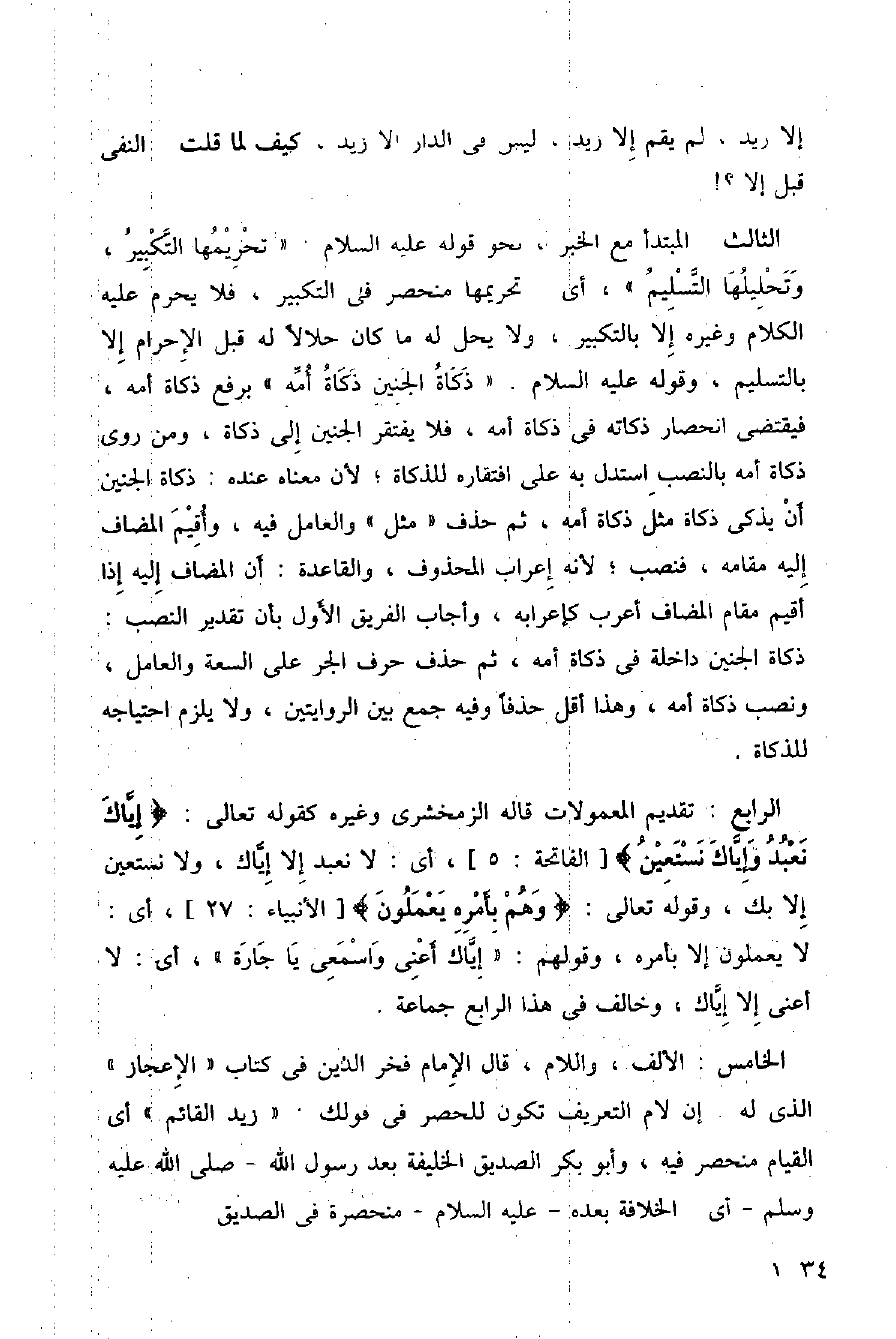 إلا زيد ، لم يقم إلا زيد ، ليس فى الدار الا زيد ، كيف لما قلت النفى
قبل إلا ؟!
الثالث المبتدأ مع الخبر ، نحو قوله عليه السلام : « تَحْرِيْمُها التَّكْبِيرُ ،
وَتَحْلِيلُهَا التَّسْلِيمُ » ، أى تحريمها منحصر فى التكبير ، فلا يحرم عليه
الكلام وغيره إلا بالتكبير ، ولا يحل له ما كان حلالاً له قبل الإحرام إلا
بالتسليم ، وقوله عليه السلام . « ذَكَاةُ الجَنينِ ذَكَاةُ أُمِّه » برفع ذكاة أمه ،
فيقتضى انحصار ذكاته فى ذكاة أمه ، فلا يفتقر الجنين إلى ذكاة ، ومن روى
ذكاة أمه بالنصبِ استدل به على افتقاره للذكاة ؛ لأن معناه عنده : ذكاة الجنين
أنْ يذكى ذكاة مثل ذكاة أمه ، ثم حذف « مثل » والعامل فيه ، وأُقِيْمَ المضاف
إليه مقامه ، فنصب ؛ لأنه إعراب المحذوف ، والقاعدة : أن المضاف إليه إذا
أقيم مقام المضاف أعرب كإعرابه ، وأجاب الفريق الأول بأن تقدير النصب :
ذكاة الجنين داخلة فى ذكاة أمه ، ثم حذف حرف الجر على السعة والعامل ،
ونصب ذكاة أمه ، وهذا أقل حذفاً وفيه جمع بين الروايتين ، ولا يلزم احتياجه
للذكاة .
الرابع : تقديم المعمولات قاله الزمخشرى وغيره كقوله تعالى : ﴿ إِيَّاكَ
نَعْبُدُ وَإِيَّاكَ نَسْتَعِيْنُ ﴾ [ الفاتحة : ٥ ] ، أى : لا نعبد إلا إيَّاك ، ولا نستعين
إلا بك ، وقوله تعالى : ﴿ وَهُمْ بِأَمْرِهِ يَعْمَلُونَ ﴾ [ الأنبياء : ٢٧ ] ، أى :
لا يعملون إلا بأمره ، وقولهم : « إِيَّاك أَعْنِى وَاسْمَعِى يَا جَارَة » ، أى : لا
أعنى إلا إيَّاك ، وخالف فى هذا الرابع جماعة .
الخامس : الألف ، واللام ، قال الإمام فخر الدين فى كتاب « الإعجاز »
الذى له . إن لام التعريف تكون للحصر فى قولك · « زيد القائم » أى
القيام منحصر فيه ، وأبو بكر الصديق الخليفة بعد رسول الله - صلى الله عليه
وسلم - أى الخلافة بعده - عليه السلام - منحصرة فى الصديق
١ ٣٤